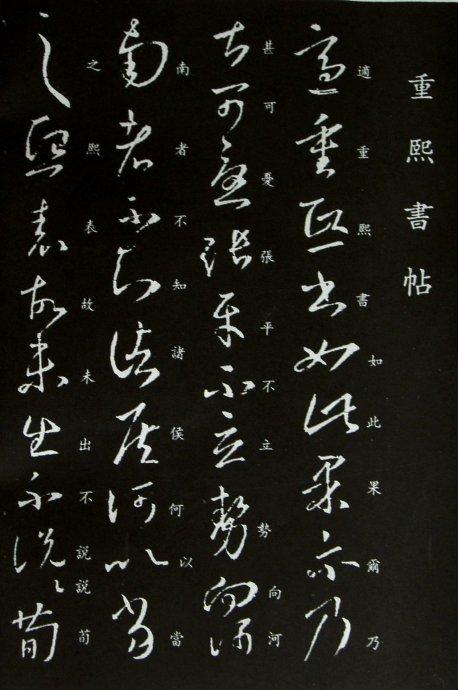 重熙書帖
適重熙書如此果爾乃
甚可憂張平不立勢向河
南者不知諸侯何以當
之熙表故未出不説説荀